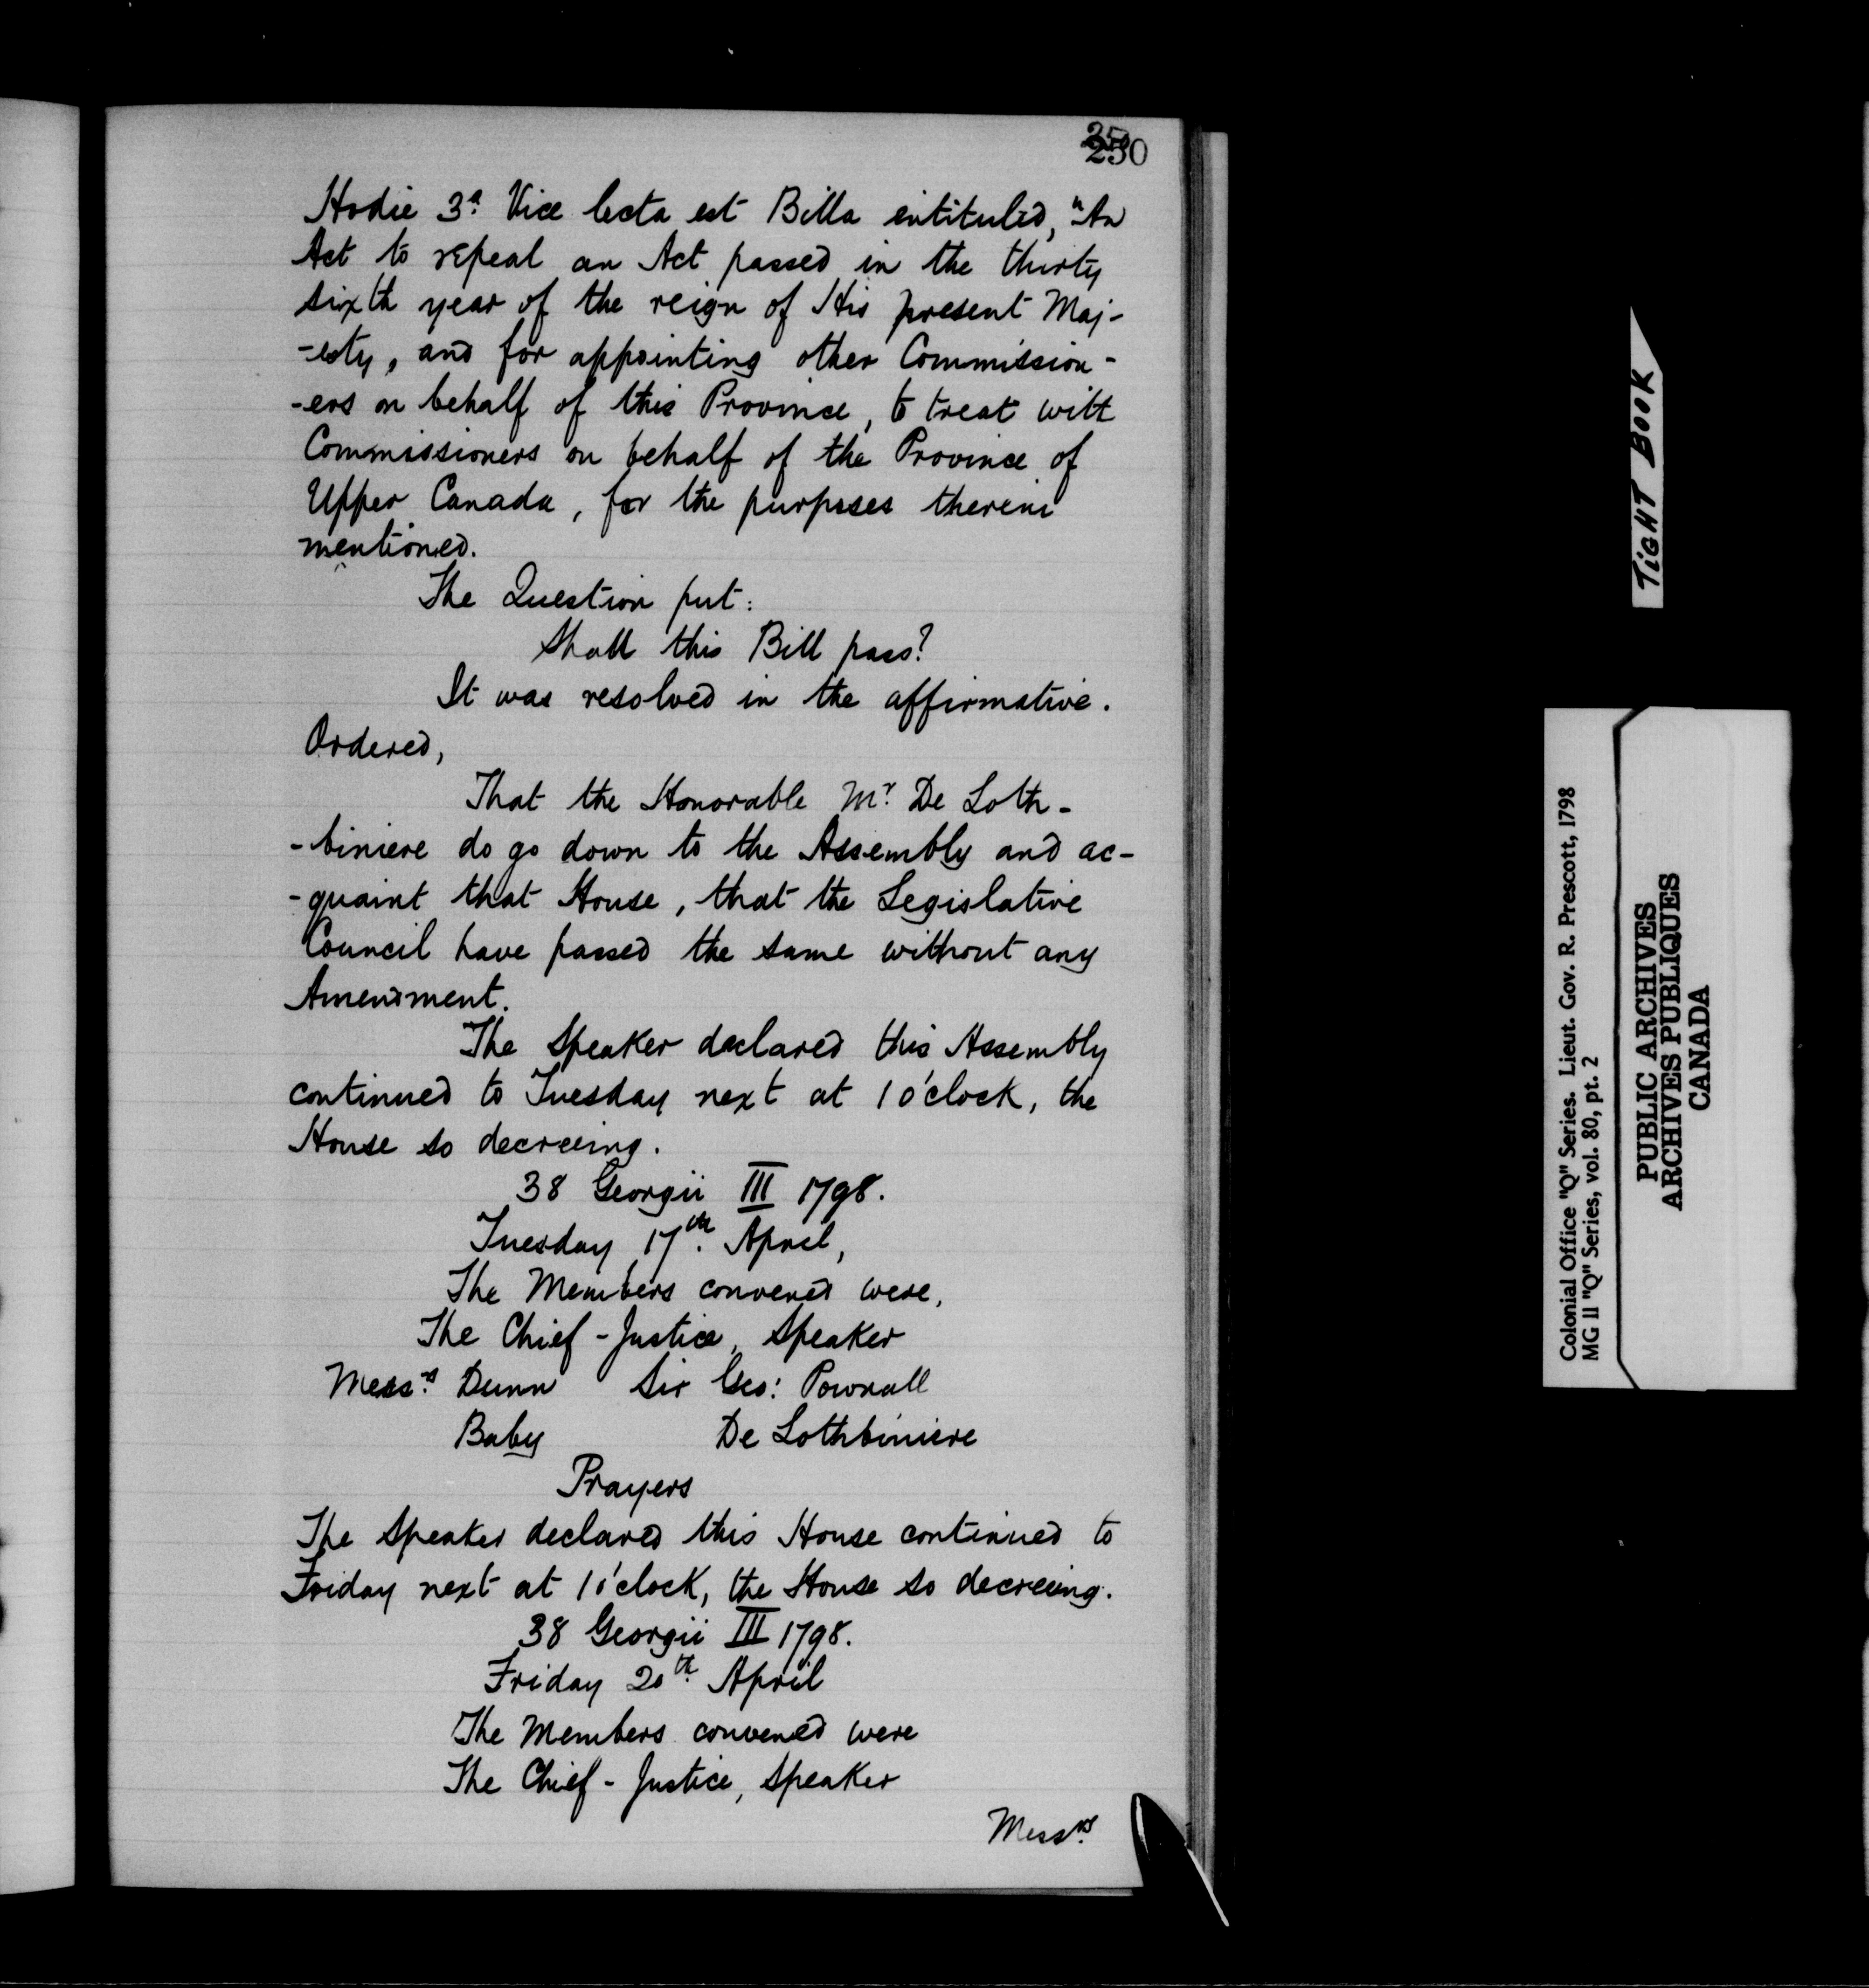 250
Hodie 3ª Vice lecta est Billa entituled, "An
Act to repeal an Act passed in the thirty
sixth year of the reign of His present Maj-
-esty, and for appointing other Commission-
-ers on behalf of this Province, to treat with
Commissioners on behalf of the Province of
Upper Canada, for the purposes therein
mentioned.
The Question put:
Shall this Bill pass?
It was resolved in the affirmative.
Ordered,
That the Honorable Mr. De Loth-
-biniere do go down to the Assembly and ac-
-quaint that House, that the Legislative
Council have passed the same without any
Amendment.
The Speaker declared this Assembly
continued to Tuesday next at 1 o'clock, the
House so decreeing.
38 Georgii III 1798.
Tuesday 17th April,
The Members convened were,
The Chief-Justice, Speaker
Messrs Dunn Sir Geo: Pownall
Baby De Lothbiniere
Prayers
The Speaker declared this House continued to
Friday next at 1 o'clock, the House so decreeing.
38 Georgii III 1798.
Friday 20th April
The Members convened were
The Chief-Justice, Speaker
Messrs
TIGHT BOOK
Colonial Office "Q" Series. Lieut. Gov. R. Prescott, 1798
MG 11 "Q" Series, vol. 80, pt. 2
PUBLIC ARCHIVES
ARCHIVES PUBLIQUES
CANADA